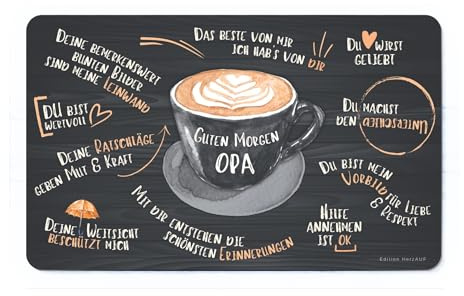 DEINE BEMERKENSWERT
BUNTEN BILDER
SIND MEINE LEINWAND
DAS BESTE VON MIR
ICH HAB'S VON DIR
DU WIRST
GELIEBT
DU BIST
WERTVOLL
DU MACHST
DEN UNTERSCHIED
GUTEN MORGEN
OPA
DEINE RATSCHLÄGE
GEBEN MUT & KRAFT
DU BIST MEIN
VORBILD FÜR LIEBE
& RESPEKT
DEINE WEITSICHT
BESCHÜTZT MICH
MIT DIR ENTSTEHEN DIE
SCHÖNSTEN ERINNERUNGEN
HILFE
ANNEHMEN
IST OK
Edition HerzAUF